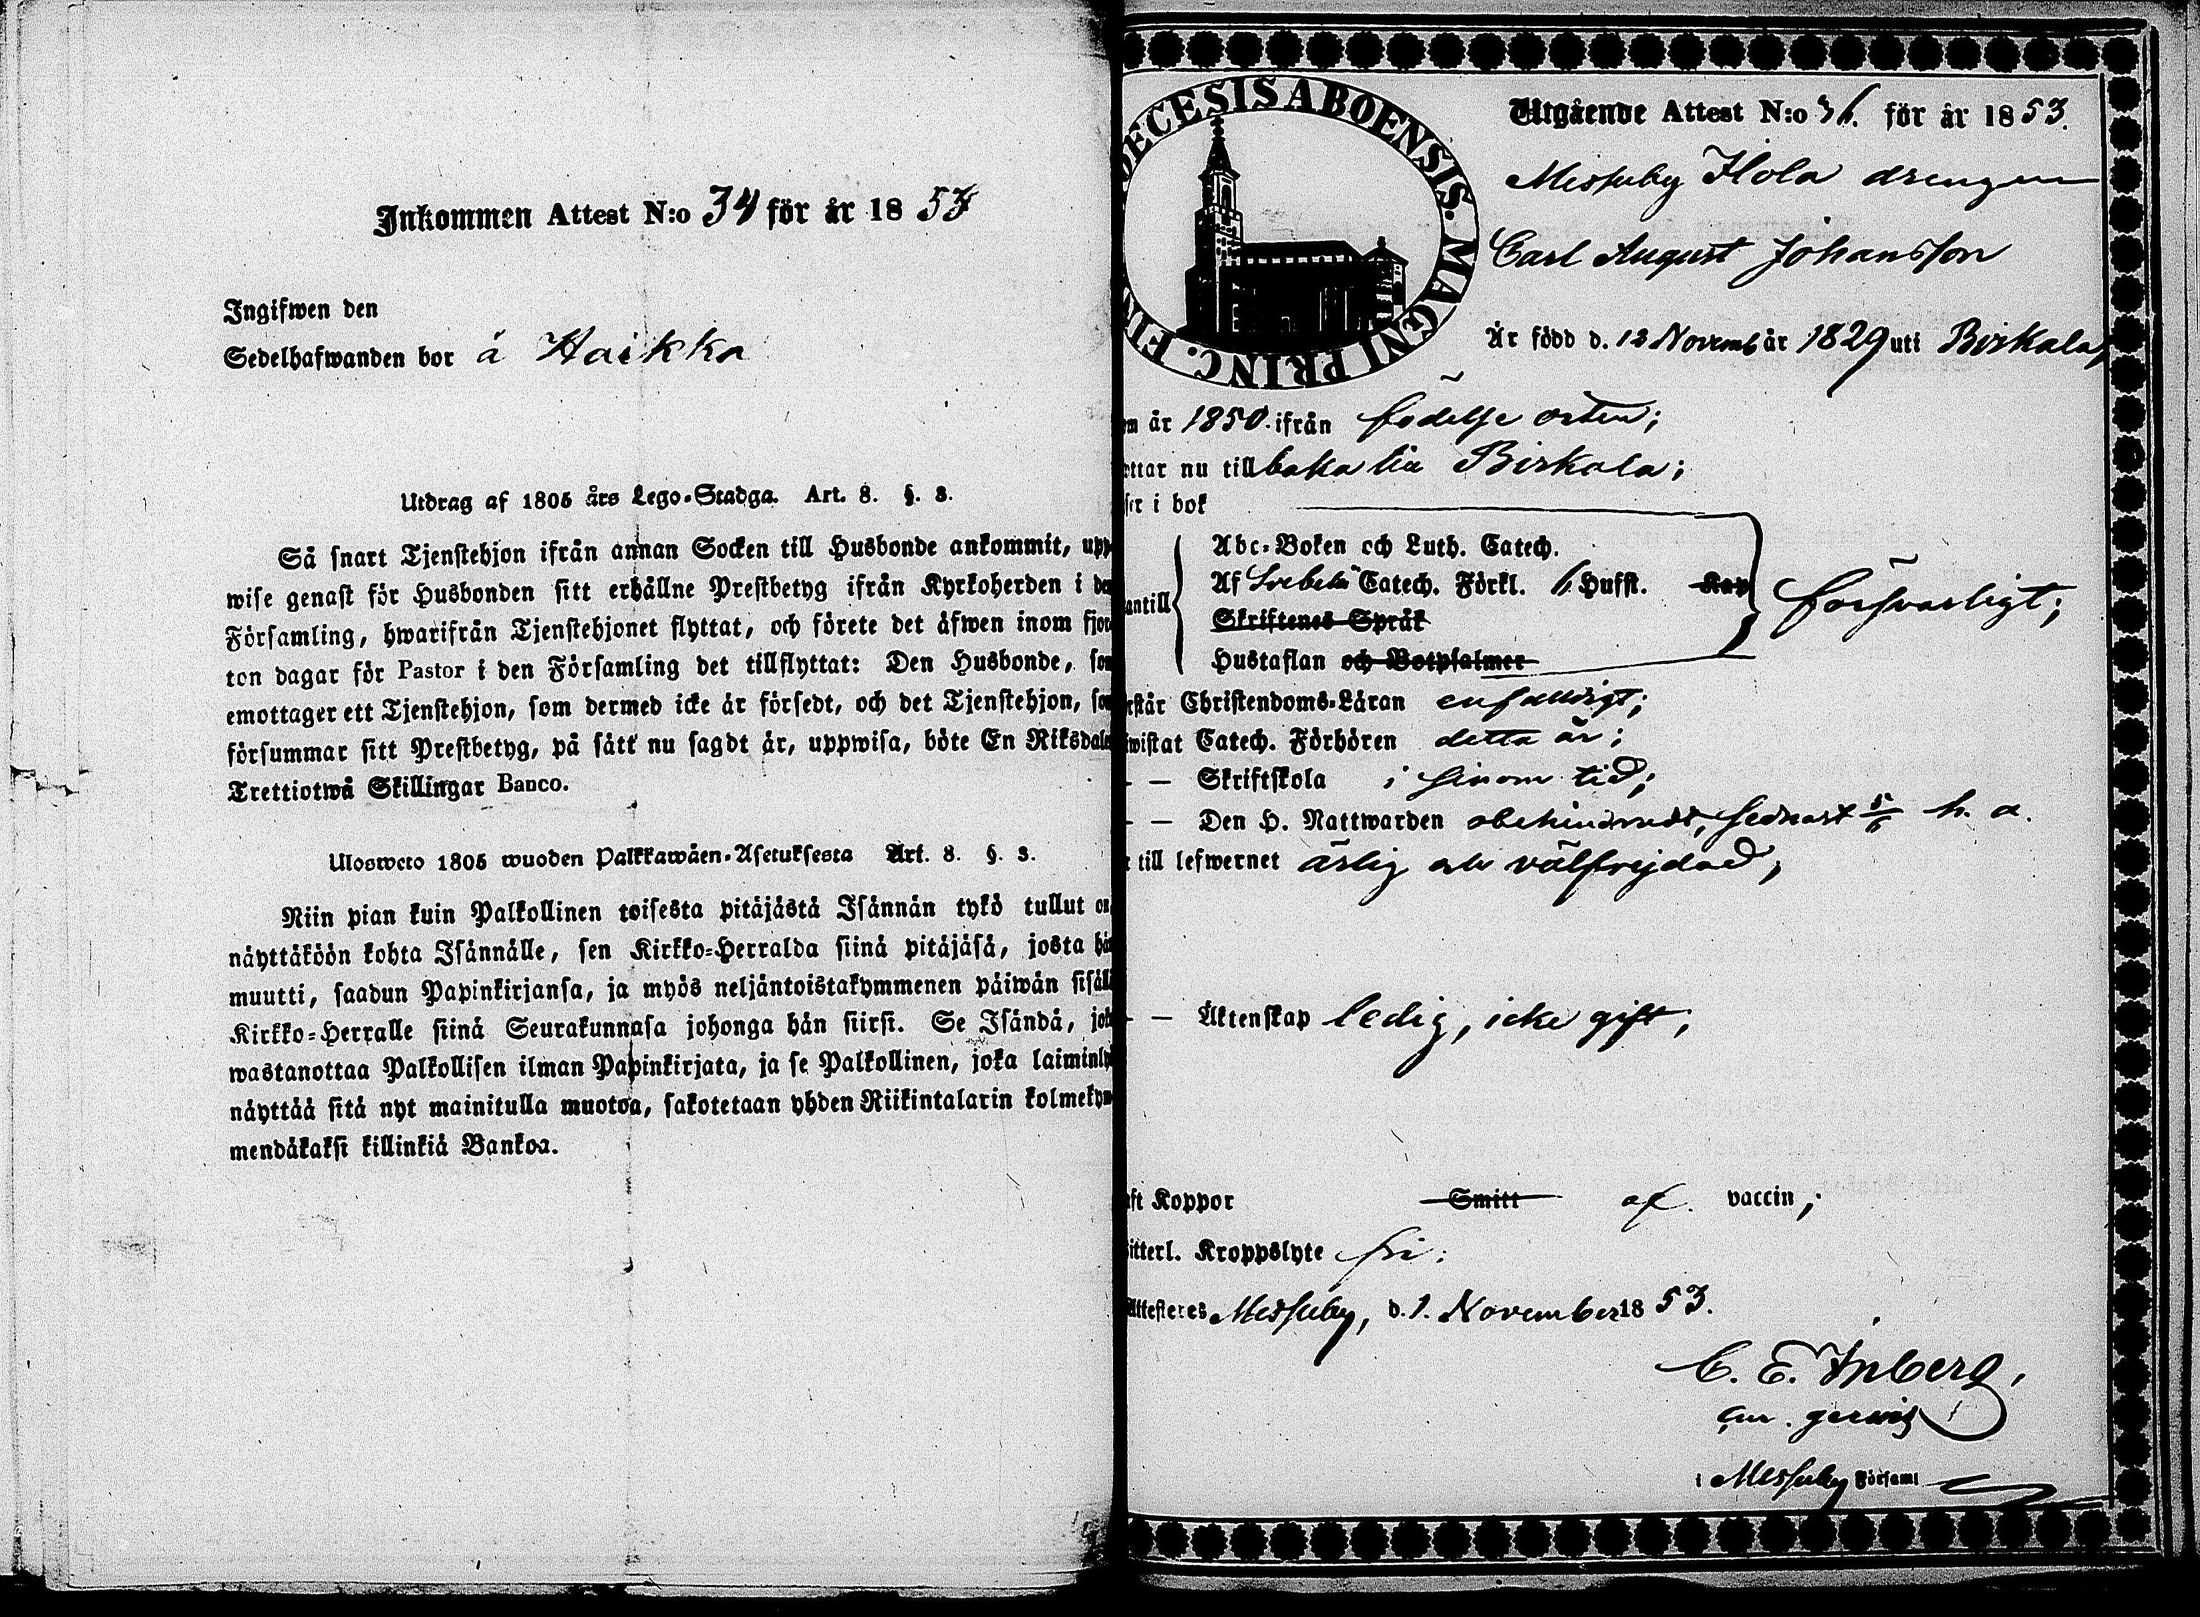 Inkommen Attest N:o 34 för år 1853
Ingifwen den
Sedelhafwanden bor å Haikka
Utdrag af 1805 års Lego-Stadga. Art. 8. §. 3.
Så snart Tjenstehjon ifrån annan Socken till Husbonde ankommit, upp-
wise genast för Husbonden sitt erhållne Prestbetyg ifrån Kyrkoherden i den
Församling, hwarifrån Tjenstehjonet flyttat, och förete det äfwen inom fjor-
ton dagar för Pastor i den Församling det tillflyttat: Den Husbonde, som
emottager ett Tjenstehjon, som dermed icke är försedt, och det Tjenstehjon, som
försummar sitt Prestbetyg, på sätt nu sagdt är, uppwisa, böte En Riksdaler
Trettiotwå Skillingar Banco.
Uloswcto 1805 wuoden Palkkawäen-Asetuksesta Art. 8. §. 3.
Niin pian kuin Palkollinen toisesta pitäjästä Isännän tykö tullut on,
näyttäköön kohta Isännälle, sen Kirkko-Herralda siinä pitäjäsä, josta hän
muutti, saadun Papinkirjansa, ja myös neljäntoistakymmenen päiwän sisäll
Kirkko-Herralle siinä Seurakunnasa johonga hän siirsi. Se Isändä, jok
wastanottaa Palkollisen ilman Papinkirjata, ja se Palkollinen, joka laiminly
näyttää sitä nyt mainitulla muotoa, sakotetaan yhden Riikintalarin kolmekym-
mendäkaksi killinkiä Bankoa.
DECESIS ABOENSIS. MAGNI PRINC. FIN
Utgående Attest N:o 36. för år 1853.
Messuby Hola drengen
Carl August Johansson
Är född d. 12 Novemb år 1829 uti Birkala,
om år 1850. ifrån födelse orten;
ttar nu tillbaka till Birkala;
ser i bok
antill
Abc-Boken och Luth. Catech.
Af Svebelii Catech. Förkl. 6 Hufst. Kap
Skriftenes Språk
Hustaflan och Botpsalmer
försvarligt;
rstår Christendoms-Läran enfaldigt;
wistat Catech. Förhören detta år;
— — Skriftskola i sinom tid;
— — Den H. Nattwarden obehindradt, sednast 5/6 h. a.
till lefwernet ärlig och välfrejdad;
— — Äktenskap ledig, icke gift;
ft Koppor Smitt af vaccin;
itterl. Kroppslyte fri;
Attesteres Messuby, d. 1. November 1853.
C. E. Inberg,
i Messuby Församl